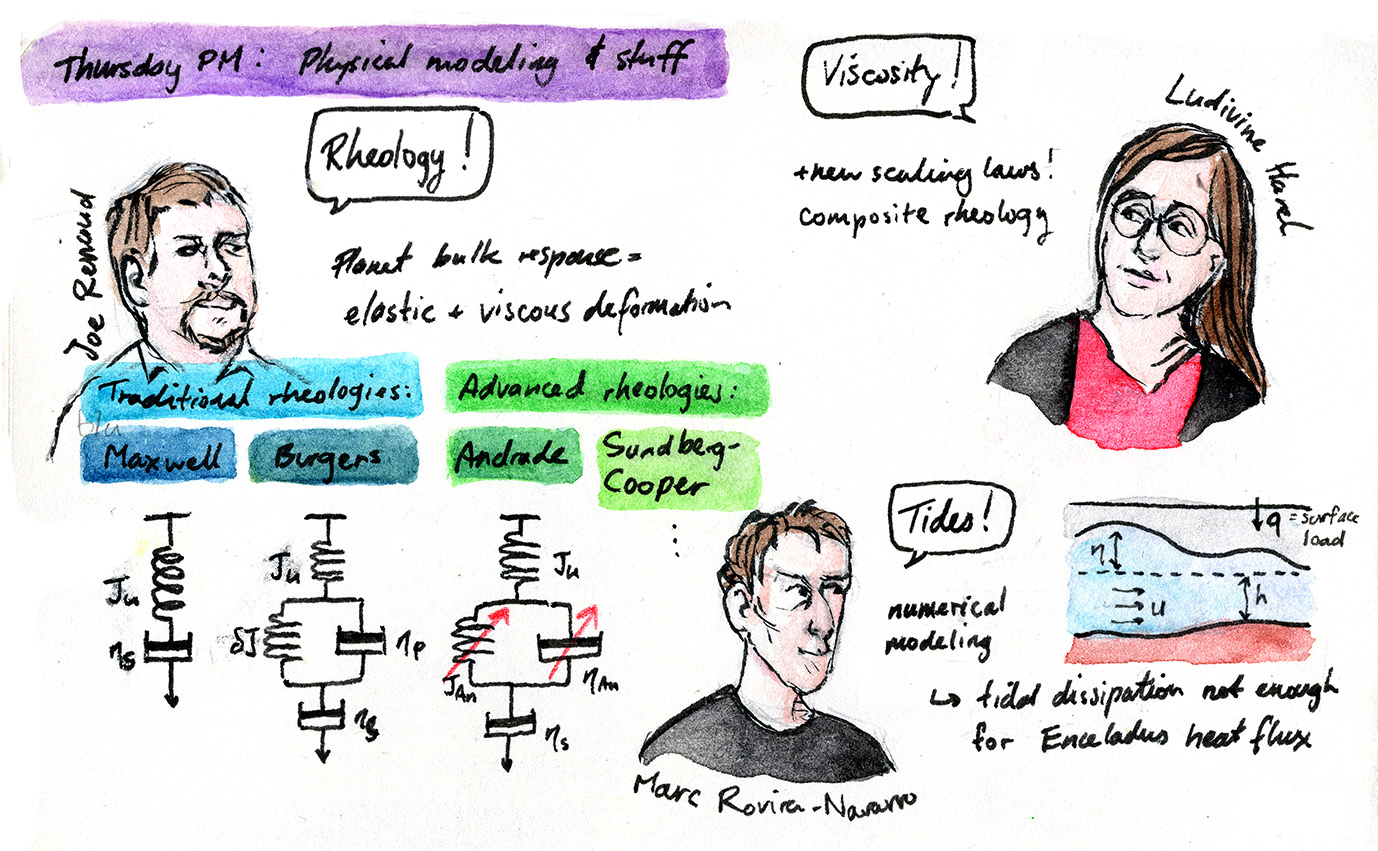 Thursday PM: Physical modeling & stuff
Rheology!
Joe Renaud
Planet bulk response =
elastic + viscous deformation
Traditional rheologies:
Maxwell
Burgers
Advanced rheologies:
Andrade
Sundberg-
Cooper
⋮
Ju
ηs
Ju
δJ
ηp
ηs
Ju
JAn
ηAn
ηs
Viscosity!
Ludivine Harel
+new scaling laws!
composite rheology
Tides!
Marc Rovira-Navarro
numerical
modeling
q = surface
load
η
h
u
↳ tidal dissipation not enough
for Enceladus heat flux